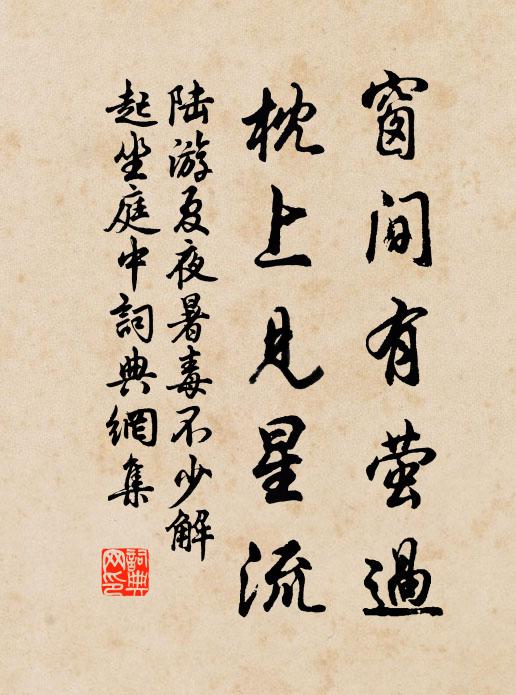 窗间有萤過
枕上見星流
陆游夏夜暑毒不少解
起坐庭中詞典網集
詞典网印